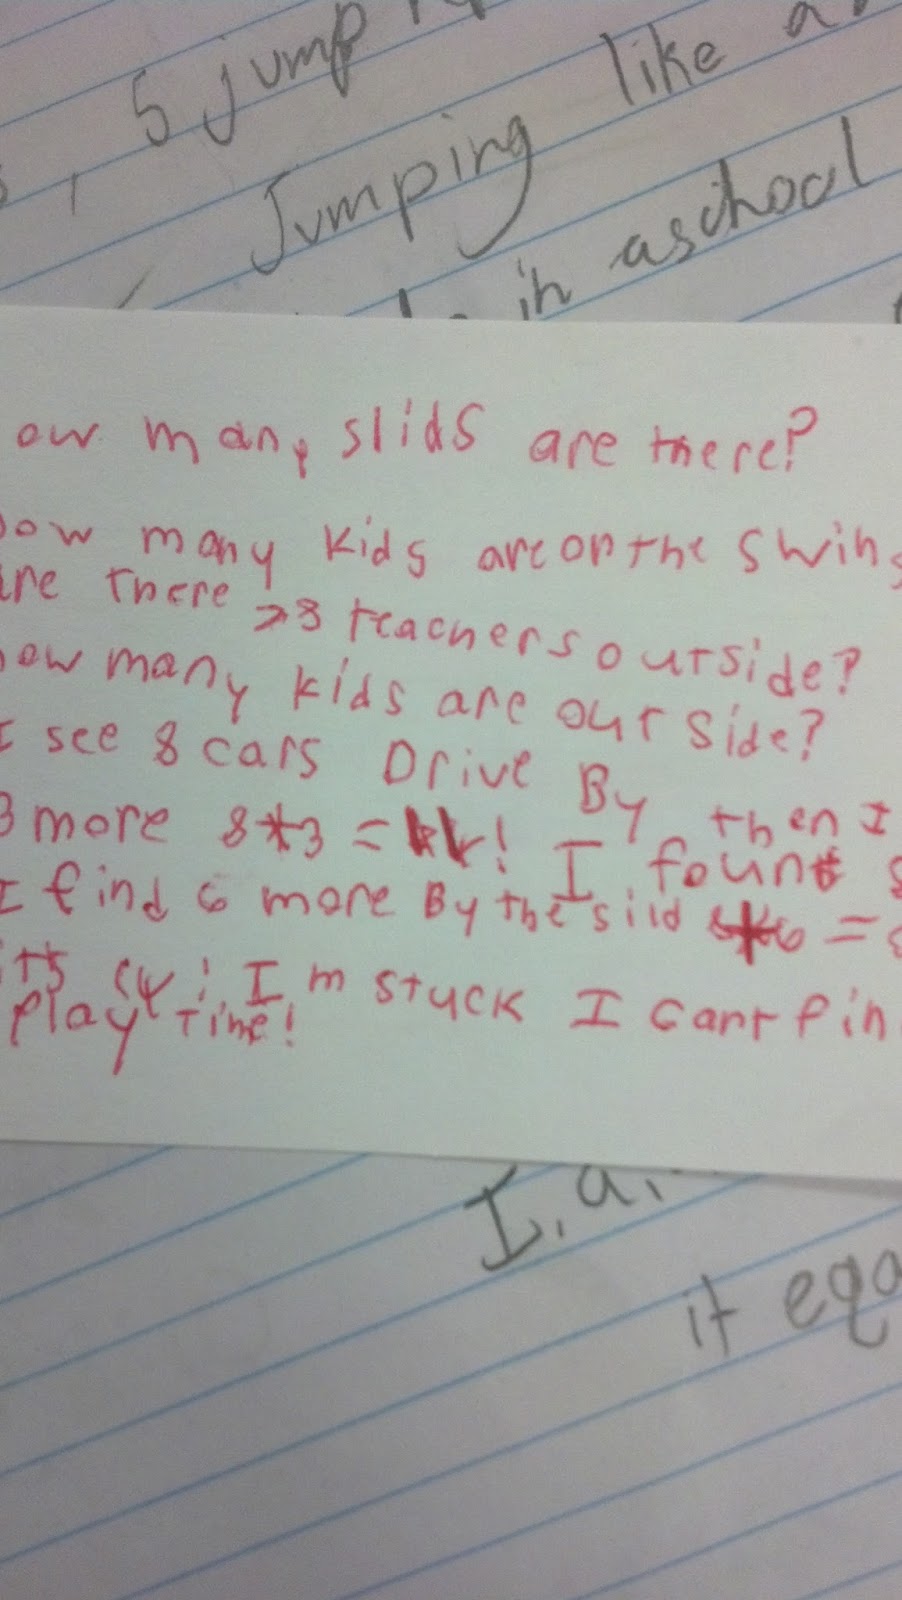 5 jump
Jumping like a
in aschool
ow many slids are there?
ow many kids are on the swin
are there >3 teachers outside?
ow many kids are out side?
I see 8 cars Drive By then I
3 more 8+3 = ! I found
I find 6 more By the slid +6 =
its
play time! I'm stuck I cant fin
I, a,
it equa